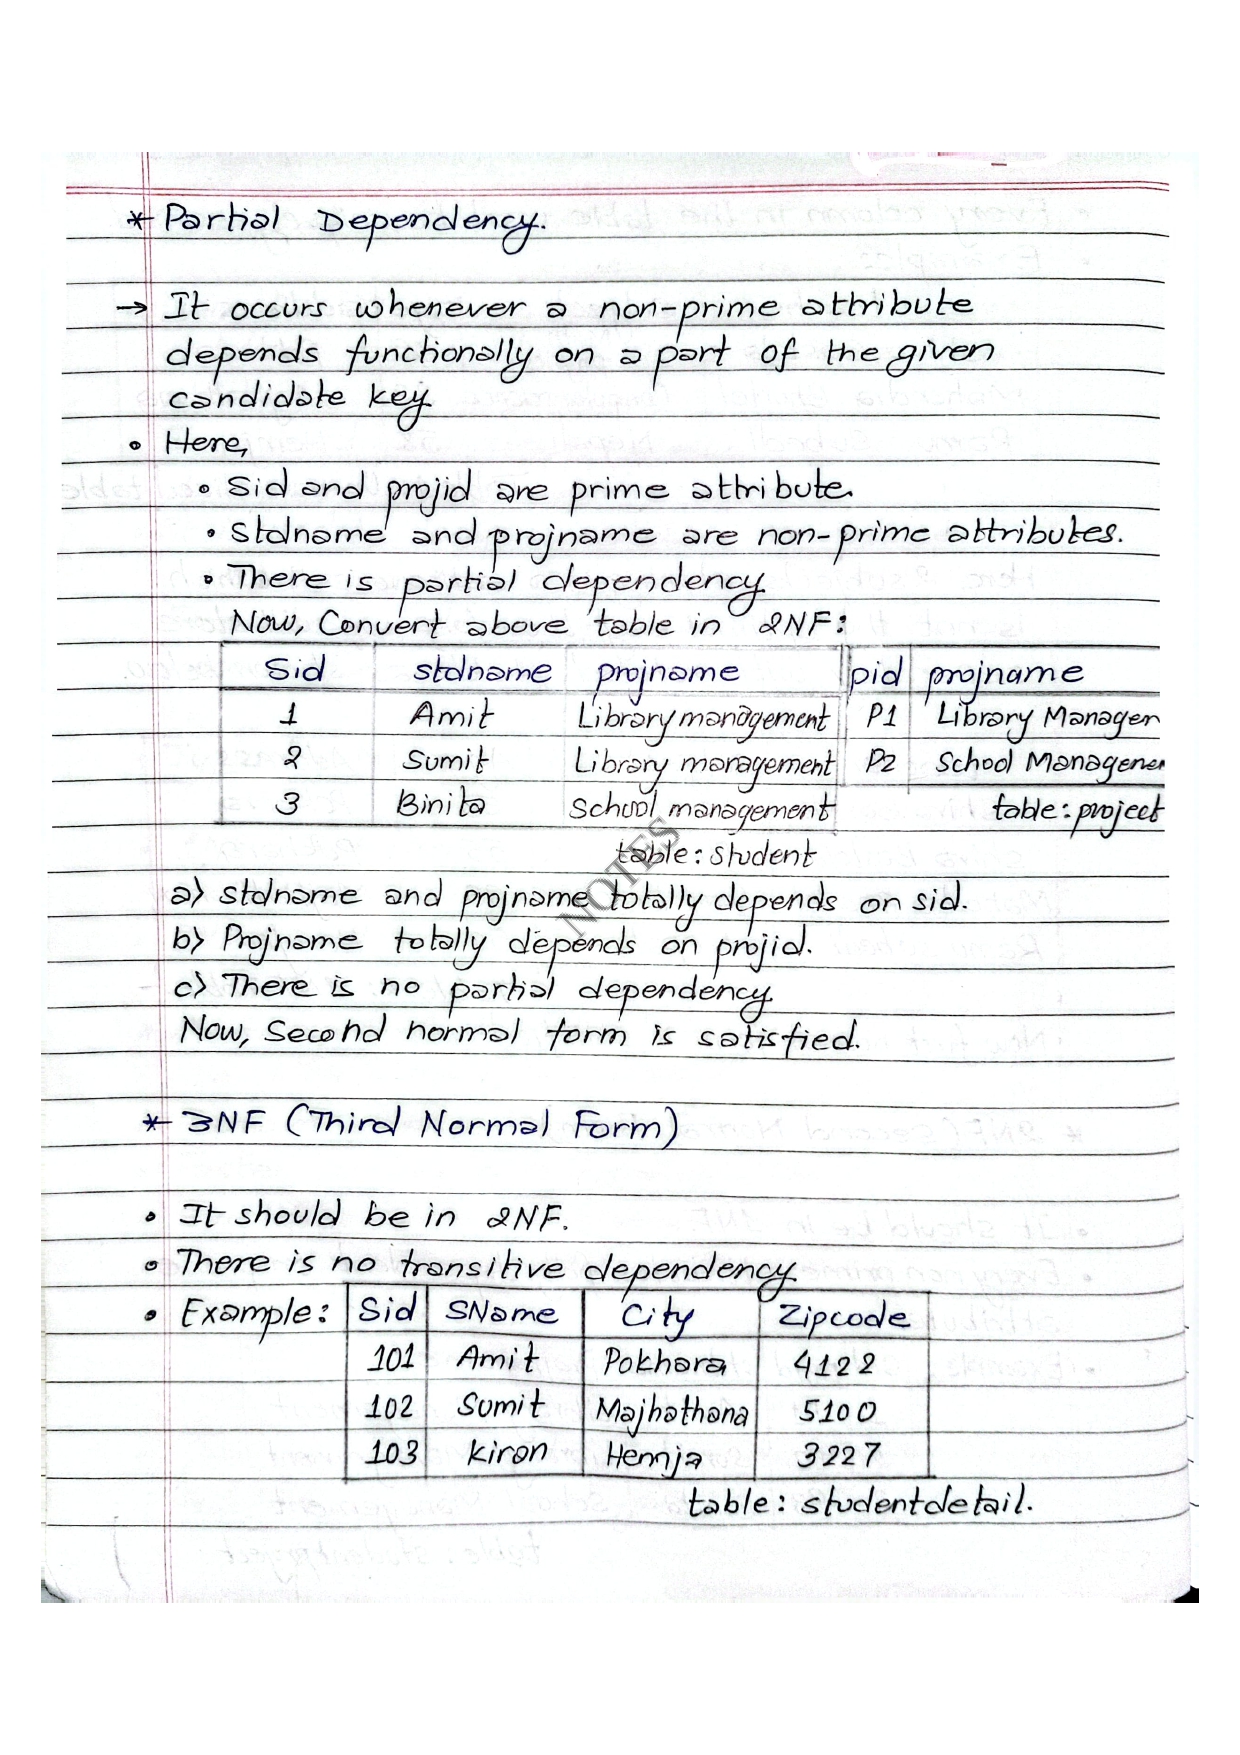 * Partial Dependency.
→ It occurs whenever a non-prime attribute
depends functionally on a part of the given
candidate key
• Here,
• Sid and projid are prime attribute.
• Stdname and projname are non-prime attributes.
• There is partial dependency
Now, Convert above table in 2NF:
Sid stdname projname pid projname
1 Amit Library management P1 Library Manager
2 Sumit Library management P2 School Managemen
3 Binita School management table: project
table: student
NOTES
a) stdname and projname totally depends on sid.
b) Projname totally depends on projid.
c) There is no partial dependency
Now, Second normal form is satisfied.
* 3NF (Third Normal Form)
• It should be in 2NF.
• There is no transitive dependency
• Example: Sid SName City Zipcode
101 Amit Pokhara 4122
102 Sumit Majhathana 5100
103 kiran Hemja 3227
table: studentdetail.